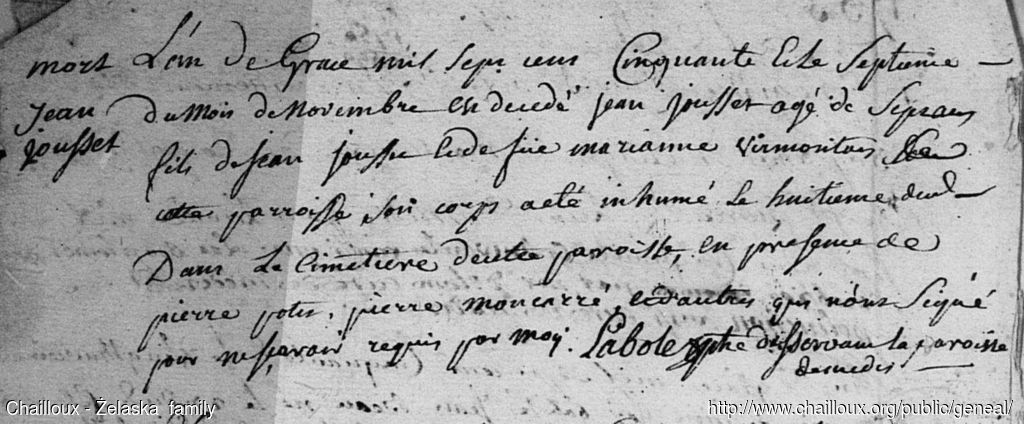 mort L'an de Grace mil sept cens Cinquante et le Septieme
Jean du Mois de Novembre est decedé jean jousset agé de Sept ans
jousset fils de jean jousset et de feüe marianne
cette parroisse, son corps a eté inhumé Le huitieme dud
Dans Le Cimetiere de cette paroisse, En presence de
pierre potet, pierre moncarré et d'autres qui n'ont Signé
pour ne sçavoir, requis par moy. desservant la paroisse
Chailloux - Żelaska family
http://www.chailloux.org/public/geneal/